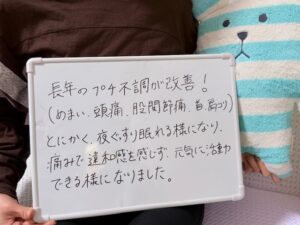 長年のプチ不調が改善！
(めまい、頭痛、股関節痛、首肩コリ)
とにかく、夜ぐっすり眠れる様になり、
痛みで違和感を感じず、元気に活動
できる様になりました。